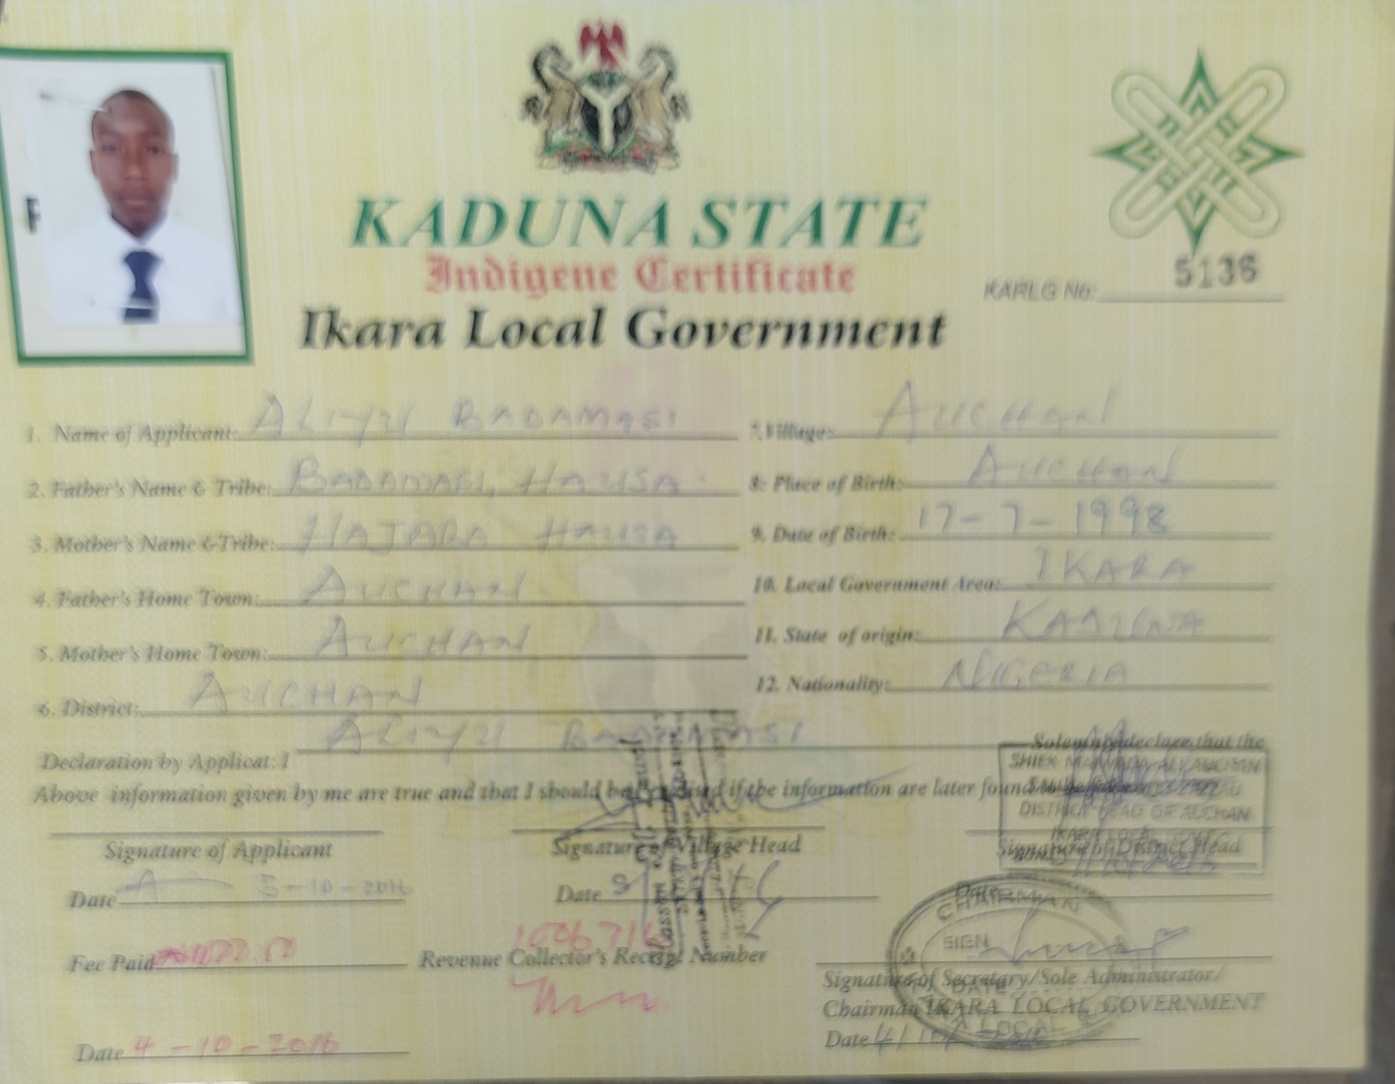 KADUNA STATE
Indigene Certificate
Ikara Local Government
KARLG No: 5136
1. Name of Applicant: ALIYU BADAMASI
2. Father's Name & Tribe: BADAMASI, HAUSA
3. Mother's Name & Tribe: HAJARA HAUSA
4. Father's Home Town: AUCHAN
5. Mother's Home Town: AUCHAN
6. District: AUCHAN
7. Village: AUCHAN
8. Place of Birth: AUCHAN
9. Date of Birth: 17-7-1998
10. Local Government Area: IKARA
11. State of origin: KADUNA
12. Nationality: NIGERIA
Declaration by Applicat: I ALIYU BADAMASI Solemnly declare that the
Above information given by me are true and that I should be if the information are later found
DISTRICT HEAD OF AUCHAN
Signature of Applicant
Signature of Village Head
Signature of District Head
Date 5-10-2016
Date
Date
CHAIRMAN
SIGN
DATE
IKARA LOCAL GOVERNMENT
Fee Paid
Revenue Collector's Receipt Number
Signature of Secretary/Sole Administrator/
Chairman
Date 4-10-2016
Date